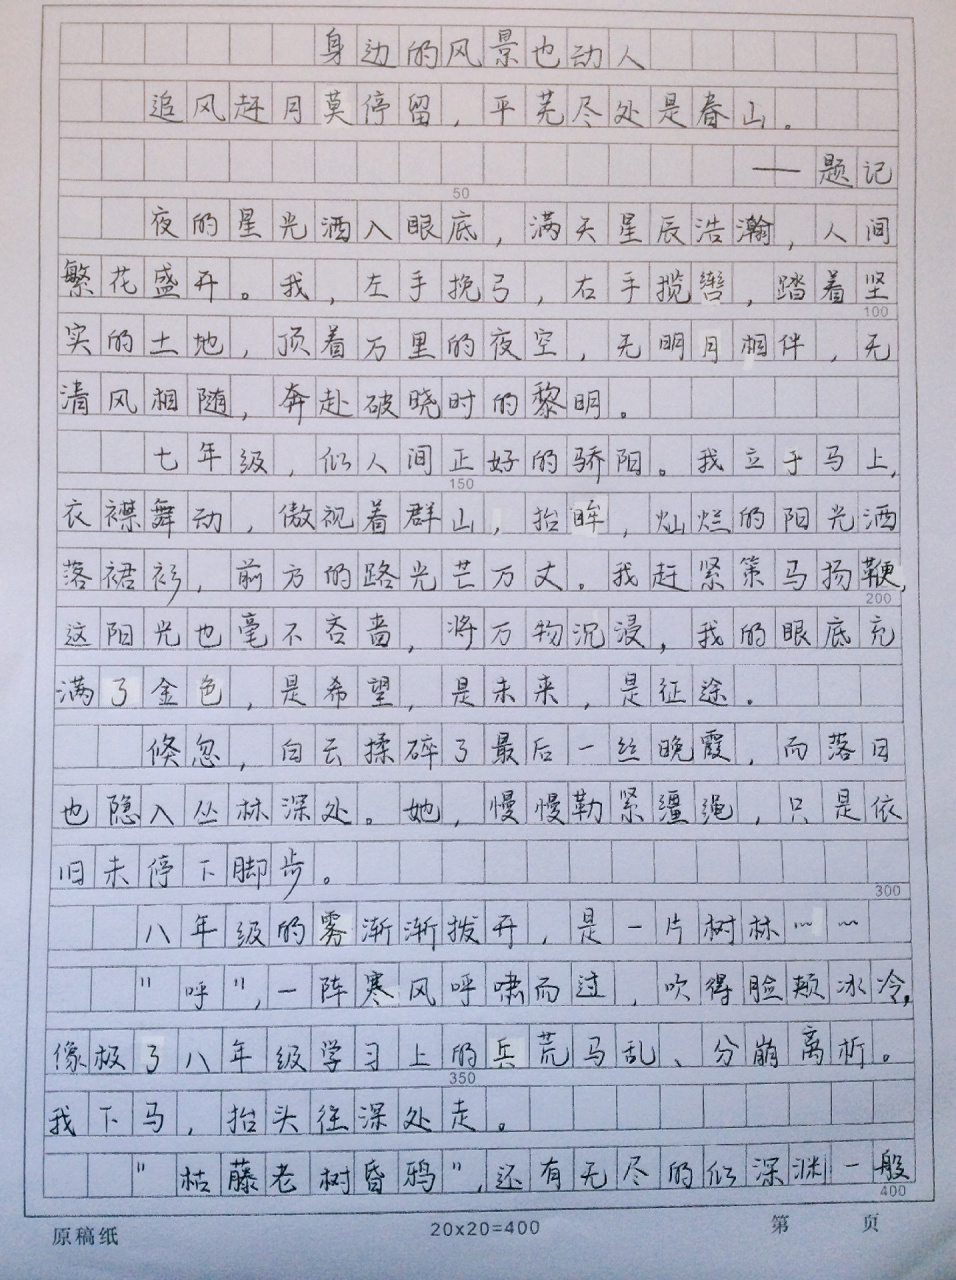 身边的风景也动人
追风赶月莫停留，平芜尽处是春山。
——题记
50
夜的星光洒入眼底，满天星辰浩瀚，人间
繁花盛开。我，左手挽弓，右手揽辔，踏着坚
100
实的土地，顶着万里的夜空，无明月相伴，无
清风相随，奔赴破晓时的黎明。
七年级，似人间正好的骄阳。我立于马上，
150
衣襟舞动，傲视着群山，抬眸，灿烂的阳光洒
落裙衫，前方的路光芒万丈。我赶紧策马扬鞭，
200
这阳光也毫不吝啬，将万物沉浸，我的眼底充
满了金色，是希望，是未来，是征途。
倏忽，白云揉碎了最后一丝晚霞，而落日
也隐入丛林深处。她，慢慢勒紧缰绳，只是依
旧未停下脚步。
300
八年级的雾渐渐拨开，是一片树林……
"呼"，一阵寒风呼啸而过，吹得脸颊冰冷，
像极了八年级学习上的兵荒马乱、分崩离析。
350
我下马，抬头往深处走。
"枯藤老树昏鸦"，还有无尽的似深渊一般
400
原稿纸 20x20=400 第 页